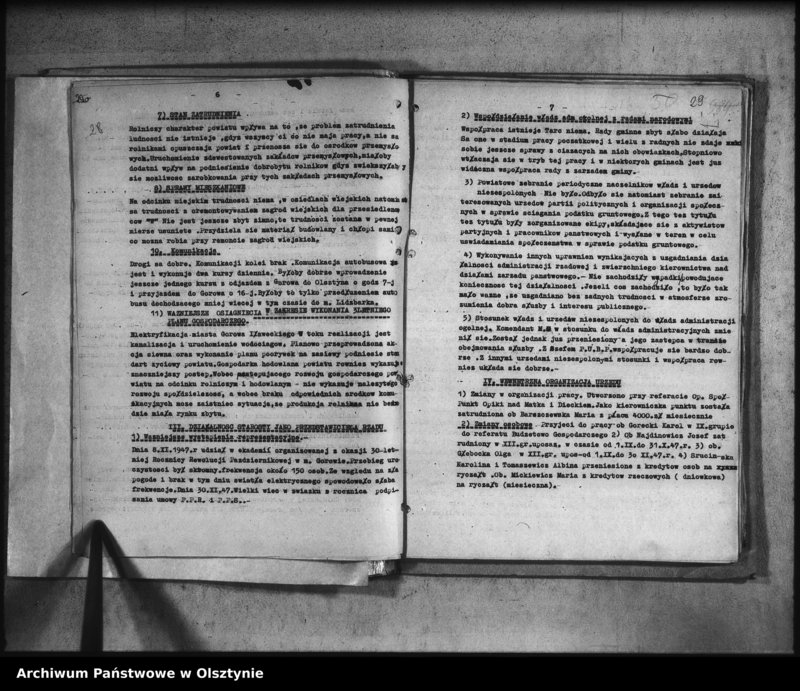 6
28
7) STAN ZATRUDNIENIA
Rolniczy charakter powiatu wpływa na to ,że problem zatrudnienia
ludnosci nie istnieje ,gdyż wszyscy ci do nie maja pracy,a nie sa
rolnikami opuszczaja powiat i przenosza sie do osrodkow przemysło
wych.Uruchomienie zdewastowanych zakładow przemysłowych,miałoby
dodatni wpływ na podniesienie dobrobytu rolnikow gdyż zwiekszyłaby
sie możliwosc zarobkowania przy tych zakładach przemysłowych.
8) SPRAWY MIESZKANIOWE
Na odcinku miejskim trudnosci niema ,w osiedlach wiejskich natomia
sa trudnosci z okwomentowyaniem zagrod wiejskich dla przesiedlenc
cow "W" Nie jest jeszcze zbyt zimno,te trudnosci zostana w pewnej
mierze usuniete .Przydziela sie materiał budowlany i chłopi sami
co można robia przy remoncie zagrod wiejskich.
10. Komunikacja.
Drogi sa dobre. Komunikacji kolei brak .Komunikacja autobusowa
jest i wykonuje dwa kursy dziennie. Byłoby dobrze wprowadzenie
jeszcze jednego kursu z odjazdem z Gorowa do Olsztyna o godz 7-j
i przyjazdem do Gorowa o 16-j.Byłoby to tylko przedłużeniem auto
busu dochodzacego mniej wiecej w tym czasie do m. Lidzbarka.
11) WAZNIEJSZE OSIAGNIECIA W ZAKRESIE WYKONANIA 3LETNIEGO
PLANU GOSPODARCZEGO.
Elektryfikacja miasta Gorowa Iławeckiego W toku realizacji jest
kanalizacja i uruchomienie wodociagow. Planowo przeprowadzona ak-
cja siewna oraz wykonanie planu poorywek na zasiewy podniesie stan
dart życiowy powiatu.Gospodarka hodowlana powiatu rownież wykazuje
znaczniejszy postep.Wobec nastepujacego rozwoju gospodarczego po-
wiatu na odcinku rolniczym i hodowlanym - nie wykazuje należytego
rozwoju społdzielczosc, a wobec braku odpowiednich srodkow komu-
nikacyjnych może zaistniec sytuacja,że produkcja rolnikma nie bedz
dzie miała rynku zbytu.
III. DZIAŁALNOSC STAROSTY JAKO PRZEDSTAWICIELA RZADU
1) Ważniejsze wystapienie reprezentacyjne.
Dnia 8.XI.1947.r odział w akademii organizowanej z okazji 30-let-
niej Rocznicy Rewolucji Pażdziernikowej w m. Gorowie.Przebieg uro
czystosci był skromny.frekwencja około 150 osob.Ze wzgledu na zła
pogode i brak w tym dniu swiatła elektrycznego spowodowało słaba
frekwencje.Dnia 30.XI.47.Wielki wiec w zwiazku z rocznica podpi-
sania umowy P.P.R. i P.P.S..
- 7 -
29
2) Wspołdziałanie władz adm ogolnej z radami narodowymi
Wspołpraca istnieje Tarc niema. Rady gminne zbyt słabo działaja
Sa one w stadium pracy poczatkowej i wielu z radnych nie zdaje
sobie jeszcze sprawy z ciazacych na nich obowiazkach.Stopniowo
właczaja sie w tryb tej pracy i w niektorych gminach jest już
widaczna wspołpraca rady z zarzadem gminy.
3) Powiatowe zebranie periodyczne naczelnikow władz i urzedow
niezespolonych Nie było.Odbyło sie natomiast zebranie zai-
teresowanych urzedow partii politycznych i organizacji społecz-
nych w sprawie sciagania podatku gruntowego.Z tego też tytułu
też tytułu były zorganizowane ekipy,składajace sie z aktywistow
partyjnych i pracownikow panstwowych i wysłane w teren w celu
uswiadamiania społeczenstwa w sprawie podatku gruntowego.
4) Wykonywanie innych uprawnien wynikajacych z uzgadniania dzia
łalnosci administracji rzadowej i zwierzchniego kierownictwa nad
działami zarzadu panstwowego.- Nie zachodziły wypadki powodujace
koniecznosc tej działalnosci .Jeżeli cos zachodziło ,to było tak
mało ważne ,że uzgadniano bez żadnych trudnosci w atmosferze zro-
zumienia dobra służby i interesu publicznego.
5) Stosunek władz i urzedow niezespolonych do władz administracji
ogolnej. Komendant M.O w stosunku do władz administracyjnych zmie
nił sie.Został jednak już przeniesiony a jego zastepca w tramzie
obejmowania służby .Z Szefem P.U.B.P.wspołpracuje sie bardzo dob-
rze .Z innymi urzedami niezespolonymi stosunki i wspołpraca row-
nież układa sie dobrze.
IV. WEWNETRZNA ORGANIZACJA URZEDU
1) Zmiany w organizacji pracy. Utworzono przy referacie Op. Społ-
Punkt Opiki nad Matka i Dieckiem.Jako kierowniczka punktu została
zatrudniona ob Bareszczewska Maria z płaca 4000.zł miesiecznie
2) Zmiany osobowe Przyjeci do pracy ob Gorecki Karol w IX.grupie
do referatu Budżetowo Gospodarczego 2) Ob Najdzinowicz Jozef zat
rudniony w XII.gr.uposaż. w czasie od 1.IX.do 31.X.47.r. 3) ob.
Głebocka Olga w XII.gr. upos-od 1.IX.do 3o XI.47.r. 4) Srucin-ska
Karolina i Tomaszewicz Albina przeniesione z kredytow osob na
ryczałt .Ob. Mickiewicz Maria z kredytow rzeczowych ( dniowkowa)
na ryczałt (miesieczna).
Archiwum Państwowe w Olsztynie